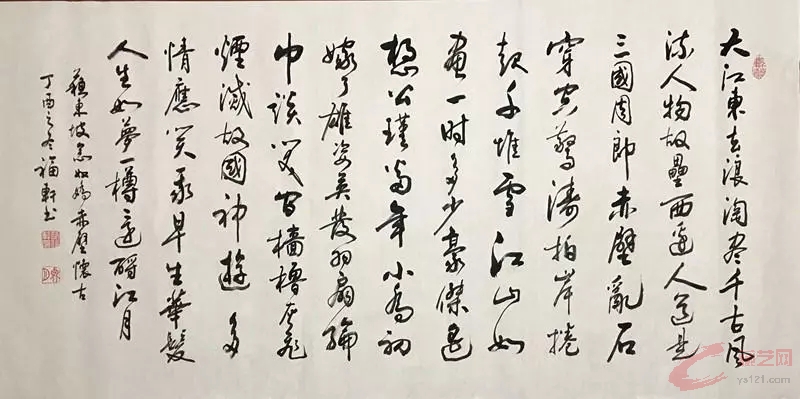 大江東去浪淘盡千古風
流人物故壘西邊人道是
三國周郎赤壁亂石
穿空驚濤拍岸捲
起千堆雪江山如
畫一时多少豪傑遥
想公瑾當年小喬初
嫁了雄姿英發羽扇綸
巾談笑间檣櫓灰飛
煙滅故國神遊多
情應笑我早生華髮
人生如夢一樽還酹江月
蘇東坡念奴嬌赤壁懷古
丁酉之冬福軒书
艺网
ys121.com